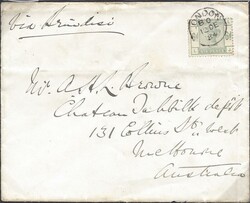 via Brindisi
LONDON
Mr. A & L Browne
Chateau Tahbilk depôt
131 Collins St. West
Melbourne
Australia